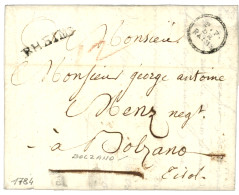 A Monsieur
Monsieur george antoine
Menz negt.
à Bolzano
BOLZANO
Tirol.
1784